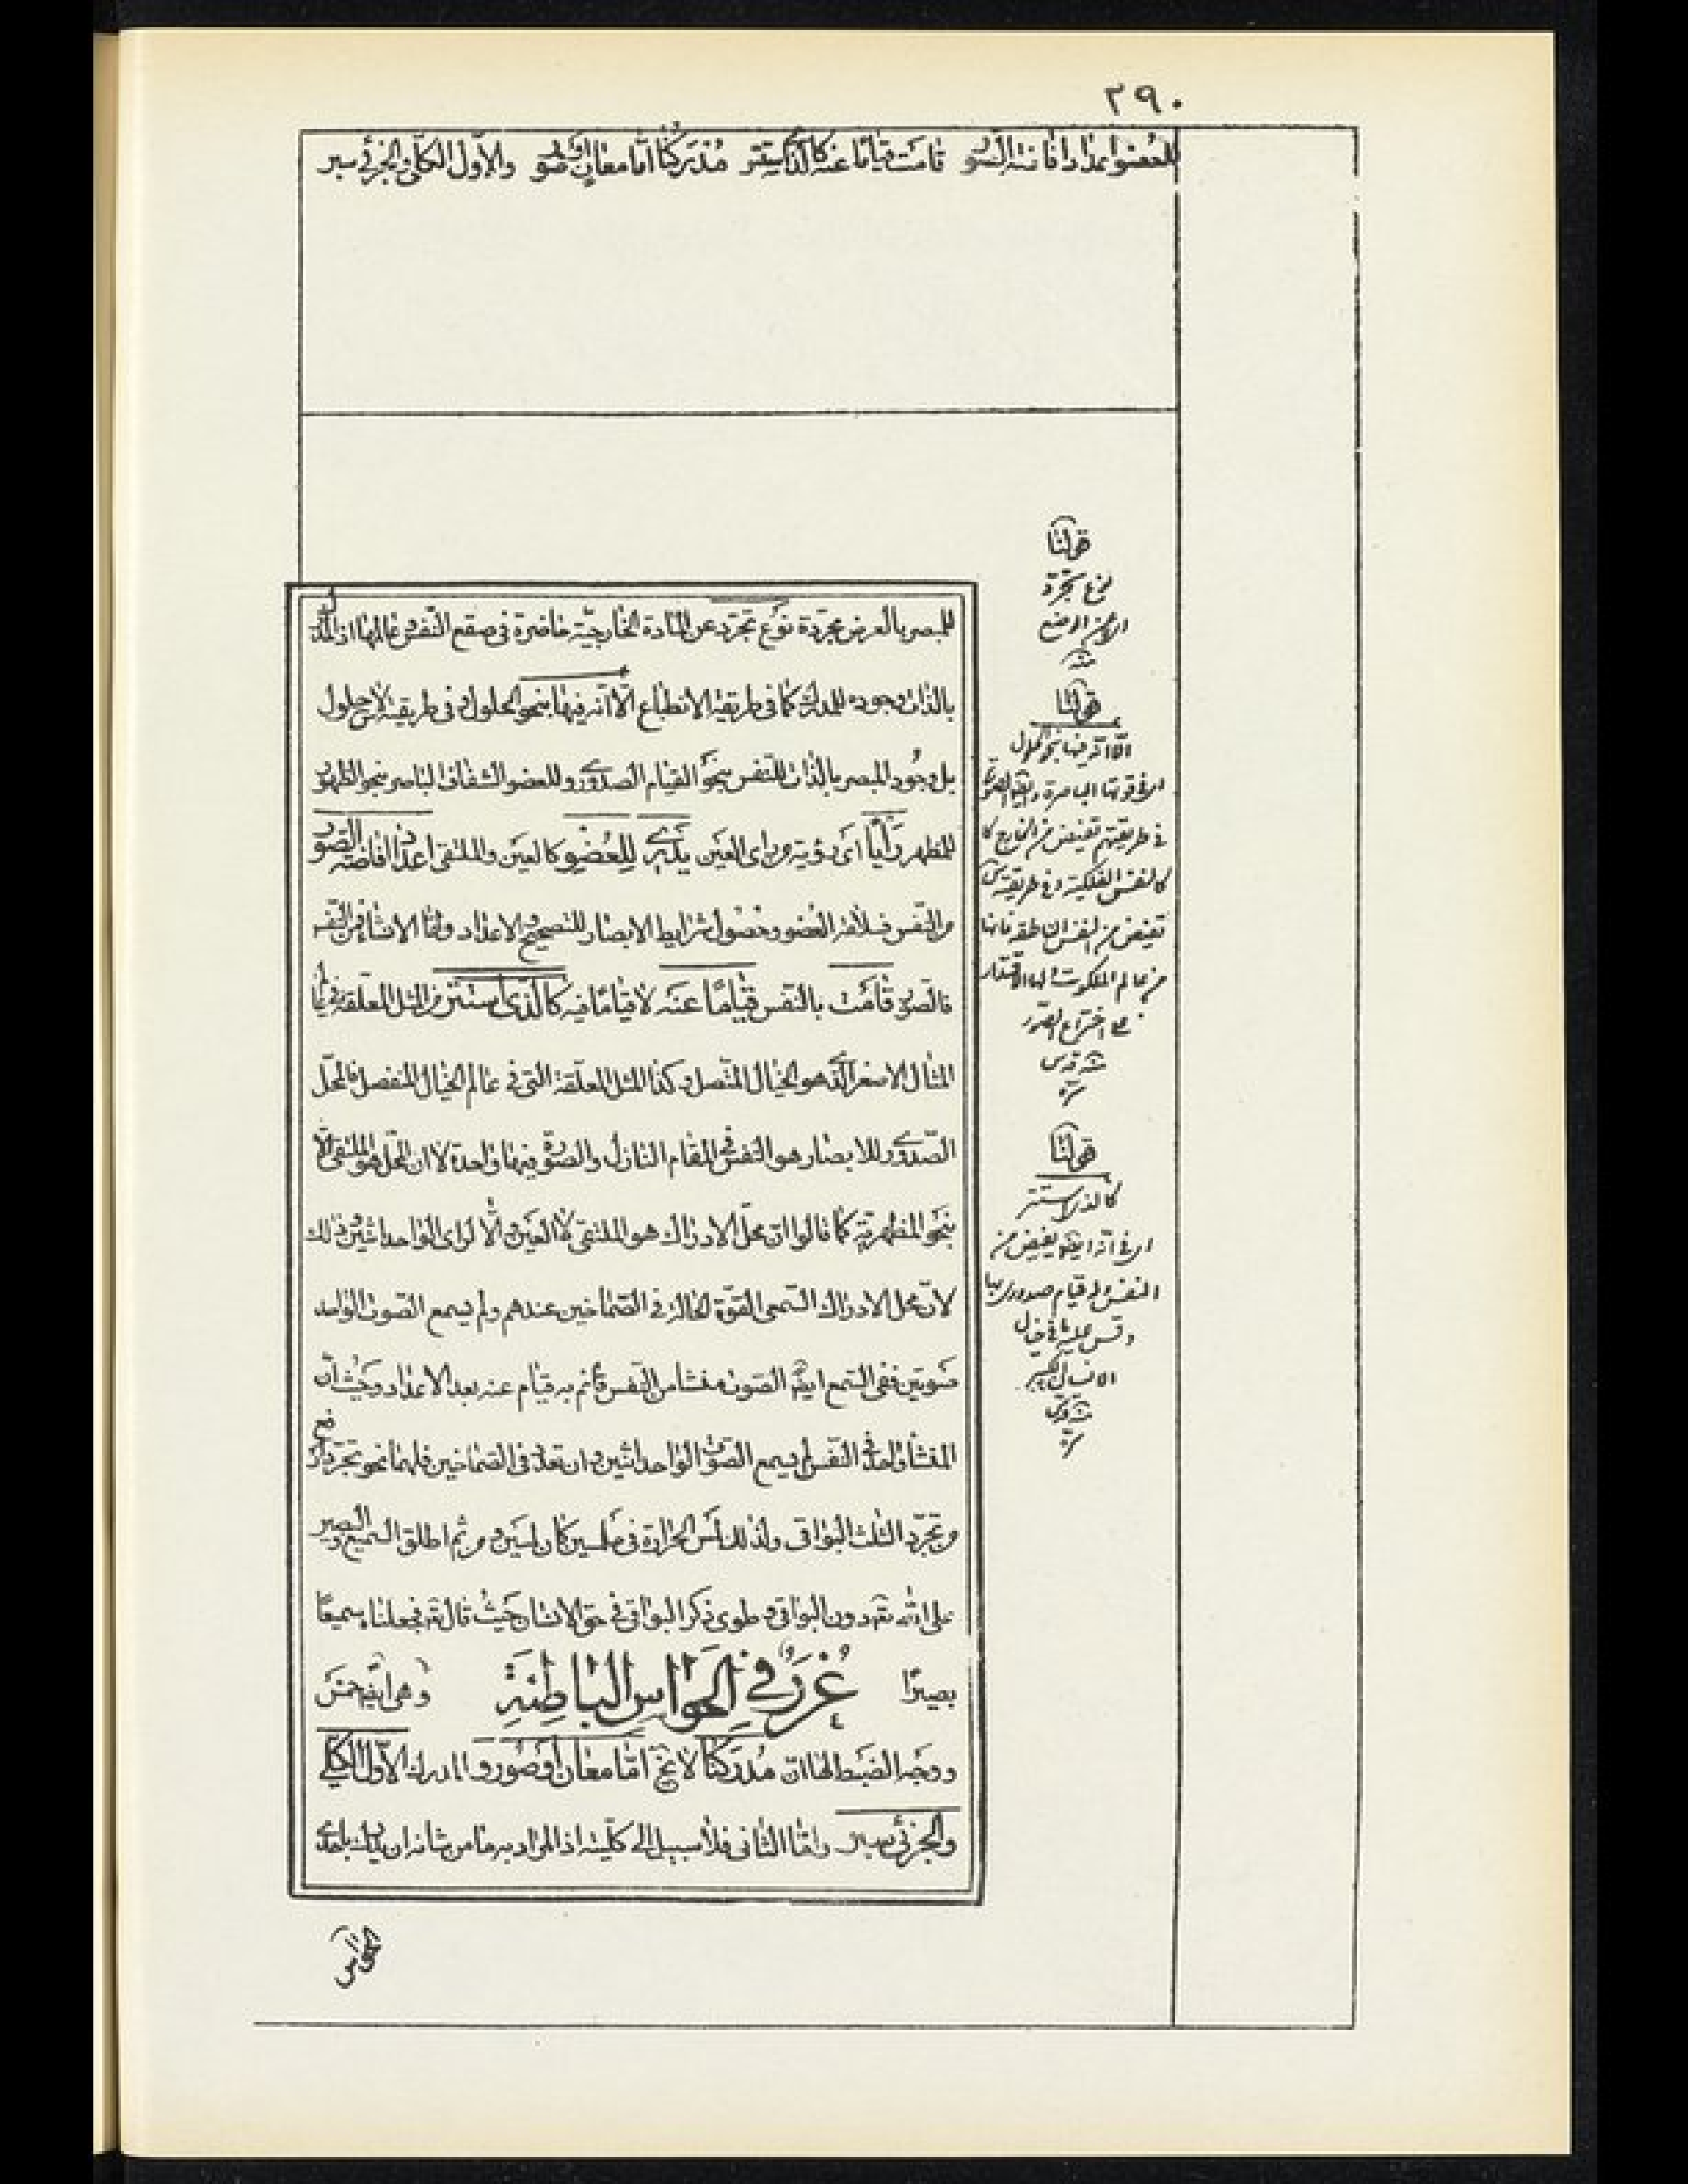 ٢٩٠
للعضو اعدادا فاضته الصور قامت قياما عنه كالذى استتر مدركنا اما معان او صور والاول الكلى والجزئى سبر
للمبصر بالعرض مجردة نوع تجرد عن المادة الخارجية حاضرة فى صقع النفس عالمها اذ المدرك
بالذات وجوده للمدرك كما فى طريقة الانطباع الا انه فيها بنحو الحلول و فى طريقة لا حلول
بل وجود المبصر بالذات للنفس بنحو القيام الصدورى وللعضو الشفاف الباصر بنحو الظهور
للمظهر رأيا اى رؤية من راى العين يدرى للعضو كالعين والملتقى اعدادا فاضته الصور
من النفس فسلامة العضو وحصول شرايط الابصار لتصحيح الاعداد واما الانشاء فمن النفس
فالصور قامت بالنفس قياما عنه لا قياما فيه كالذى استتر من المثل المعلقة فى عالم
المثال الاصغر الذى هو الخيال المتصل وكذا المثل المعلقة التى فى عالم الخيال المنفصل فالمحل
الصدورى للابصار هو النفس فى المقام النازل والصورة فيها واحدة لا ان المحل هو الملتقى الا
بنحو المظهرية كما قالوا ان محل الادراك هو الملتقى لا العين والا لراى الواحد اثنين وذلك
لان محل الادراك السمعى القوة الحالة فى الصماخين عندهم ولم يسمع الصوت الواحد
صوتين ففى السمع ايضا الصوت منشا من النفس قائم به قيام عنه بعد الاعداد وحيث ان
المنشا واحد فى النفس لم يسمع الصوت الواحد اثنين وان تعدد فى الصماخين فلهما نحو تجرد ارفع
من تجرد الثلث البواقى ولذلك لمس الحرارة فى ملمسين كان لمسين ومن ثم اطلق السميع والبصير
على الله تعه دون البواقى وطوى ذكر البواقى فى حق الانسان حيث قال تعه فجعلناه سميعا
بصيرا غرر فى الحواس الباطنة وهى ايضا خمس
ووجه الضبط لها ان مدركنا لا يخ اما معان او صور والمدرك الاول الكلى
والجزئى سبر واما الثانى فلا سبيل الى كلية اذ المراد به ما من شانه ان يدرك باحدى
الحواس
قولنا
نوع تجرد
الا عن الوضع
منه
قولنا
الا انه فيها بنحو الحلول
اى فى قوتها الباصرة وايضا الصور
فى طريقتهم تفيض من الخارج كا
كالنفس الفلكية وفى طريقة
تفيض من النفس الناطقة فانها
من عالم الملكوت لها الاقتدار
على اختراع الصور
منه قدس
سره
قولنا
كالذى استتر
اى فى انه ايضا يفيض من
النفس وله قيام صدورى بها
وقس عليه ما فى خيال
الانسان الكبير
منه قدس
سره